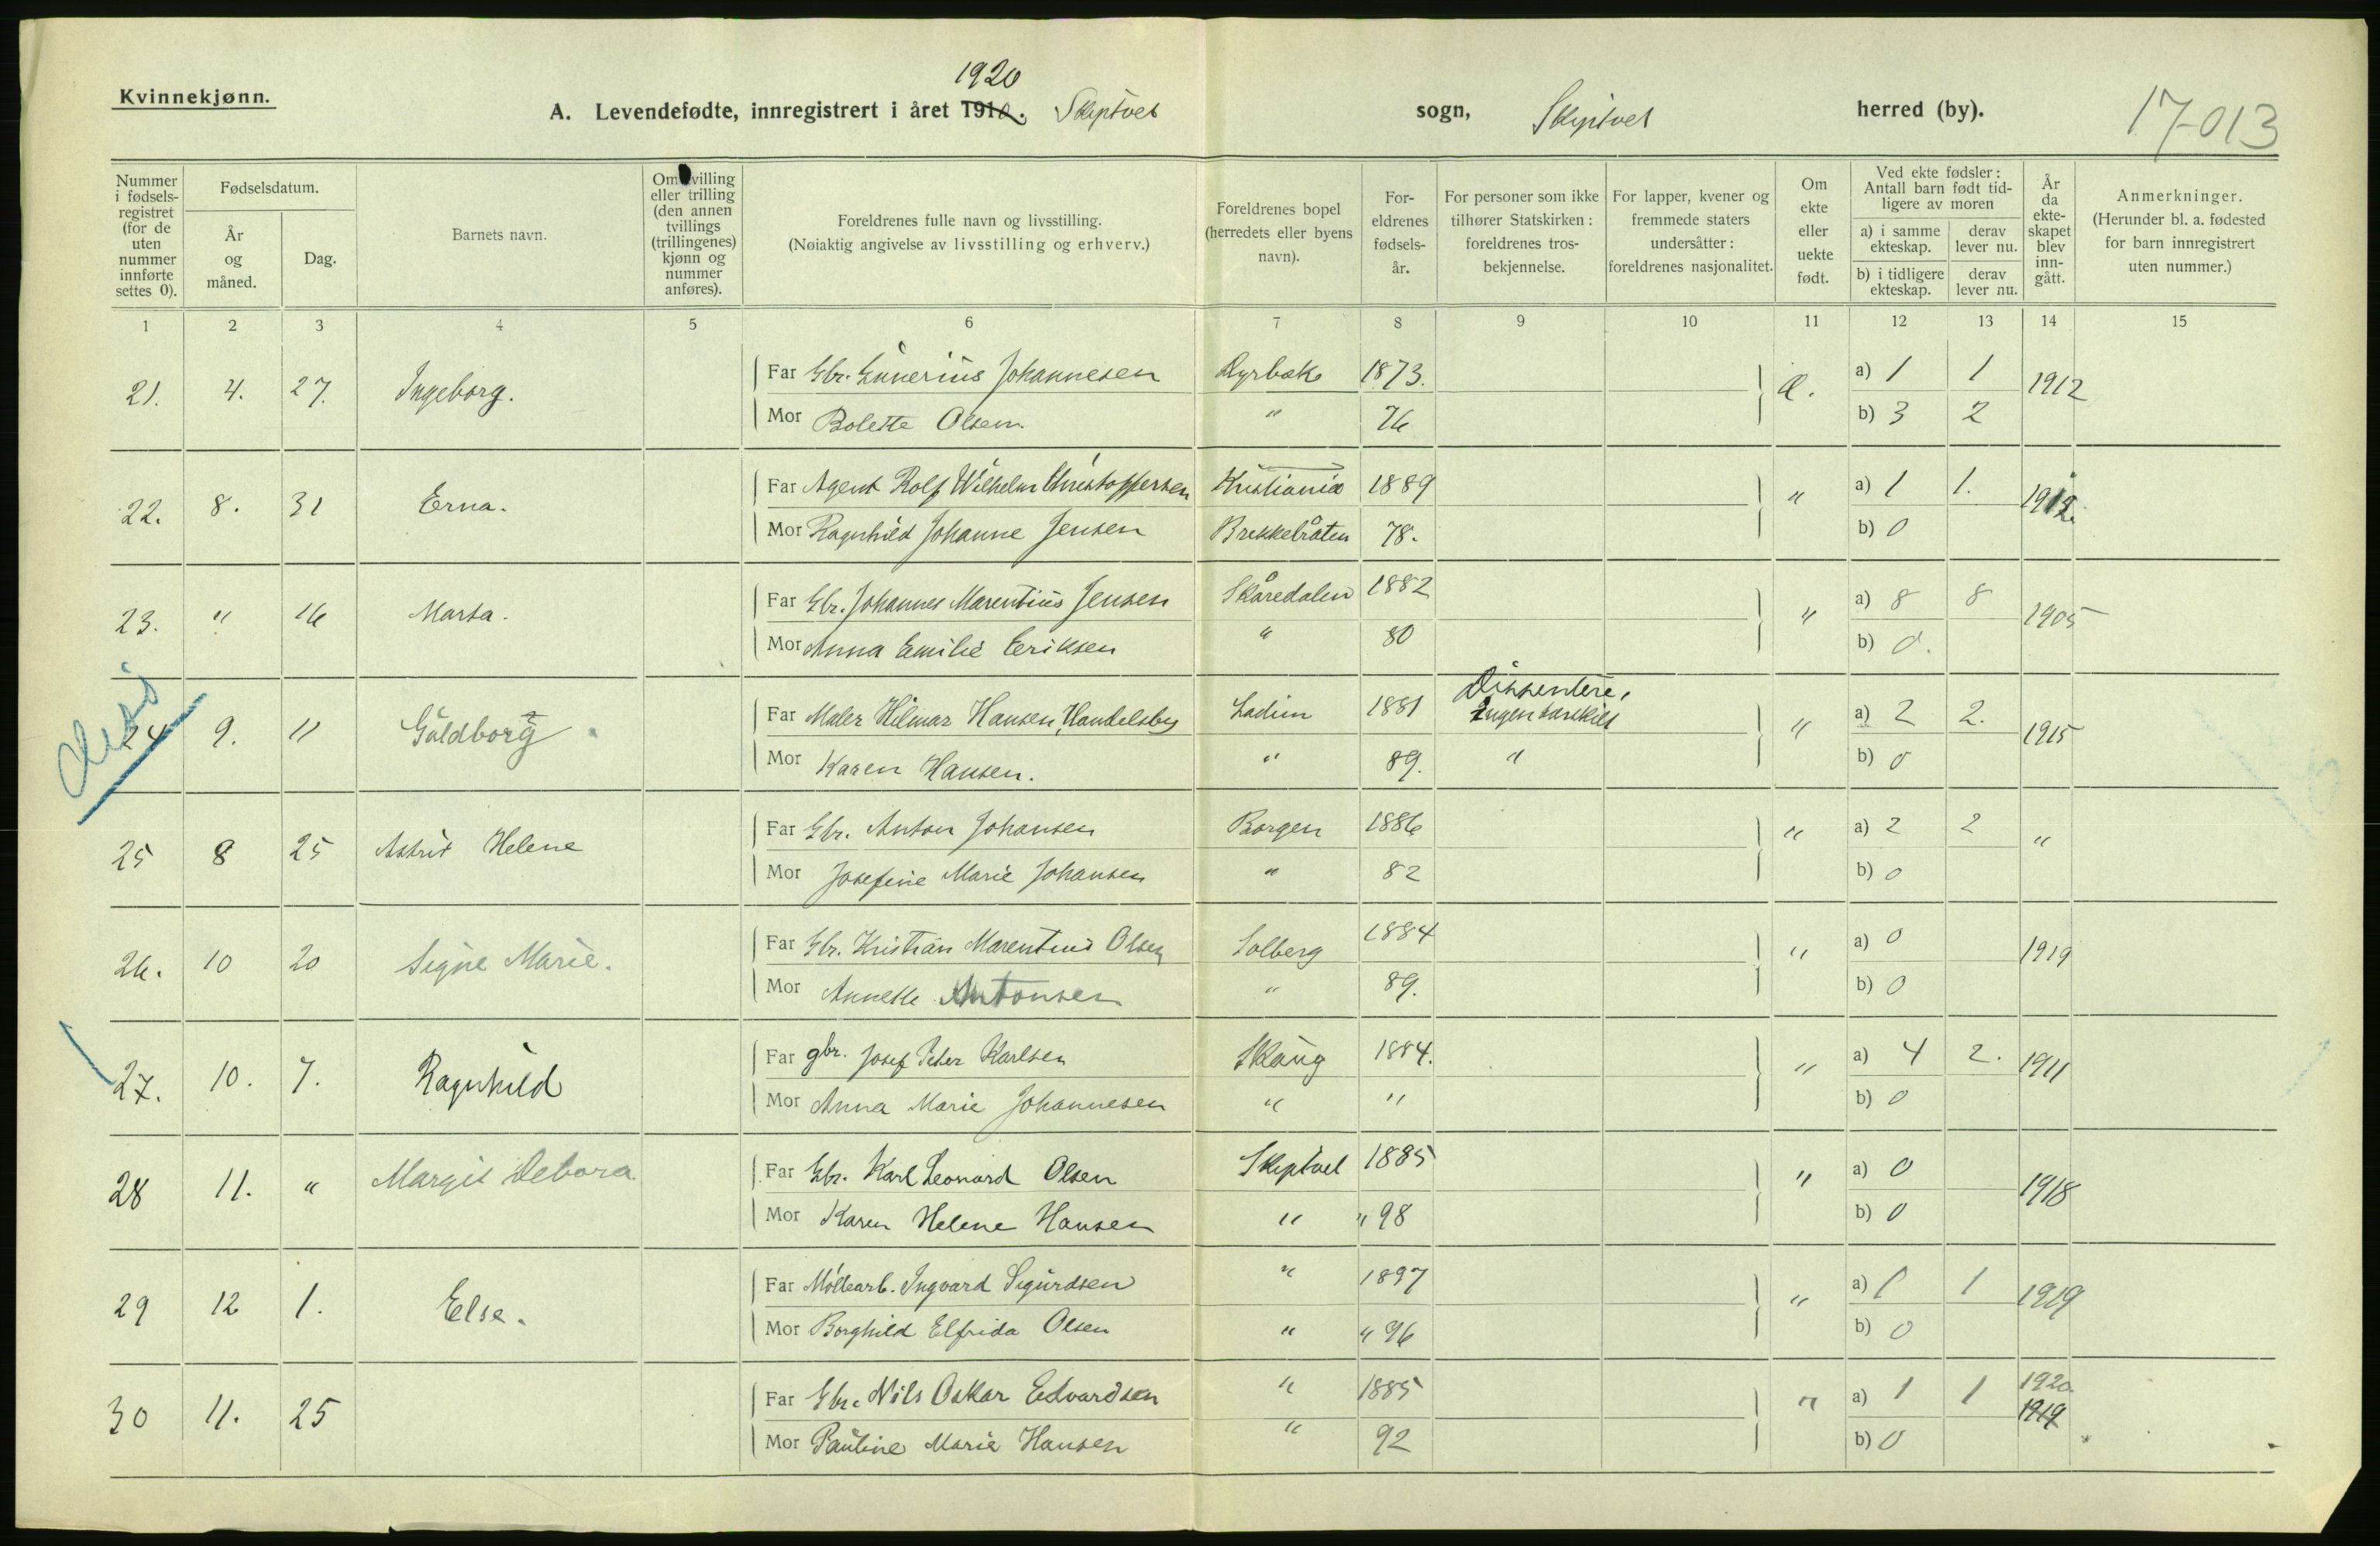 Kvinnekjønn.
1920
A. Levendefødte, innregistrert i året 1910. Skiptvet sogn, Skiptvet herred (by).
17-013
Nummer i fødsels-registret (for de uten nummer innførte settes 0).
Fødselsdatum.
År og måned.
Dag.
Barnets navn.
Om tvilling eller trilling (den annen tvillings (trillingenes) kjønn og nummer anføres).
Foreldrenes fulle navn og livsstilling.
(Nøiaktig angivelse av livsstilling og erhverv.)
Foreldrenes bopel (herredets eller byens navn).
For-eldrenes fødsels-år.
For personer som ikke tilhører Statskirken: foreldrenes tros-bekjennelse.
For lapper, kvener og fremmede staters undersåtter: foreldrenes nasjonalitet.
Om ekte eller uekte født.
Ved ekte fødsler: Antall barn født tid-ligere av moren
a) i samme ekteskap.
derav lever nu.
b) i tidligere ekteskap.
derav lever nu.
År da ekte-skapet blev inn-gått.
Anmerkninger.
(Herunder bl. a. fødested for barn innregistrert uten nummer.)
1 2 3 4 5 6 7 8 9 10 11 12 13 14 15
21. 4. 27. Ingeborg. Far Gbr. Gunerius Johannesen Dyrbæk 1873. Æ. a) 1 1 1912
Mor Bolette Olsen " 76 b) 3 2
22. 8. 31 Erna. Far Agent Rolf Wilhelm Christoffersen Kristiania 1889 " a) 1 1. 1912
Mor Ragnhild Johanne Jensen Brekkebråten 78. b) 0
23. " 16 Marta. Far Gbr. Johannes Marentius Jensen Skåredalen 1882 " a) 8 8 1905
Mor Anna Emilie Eriksen " 80 b) 0.
Diss
24 9. 11 Guldborg Far Maler Hilmar Hansen, Handelsby Ladim 1881 Dissentere, Ingen særskilt " a) 2 2. 1915
Mor Karen Hansen. " 89. " b) 0
25 8 25 Astrid Helene Far Gbr. Anton Johansen Borgen 1886 " a) 2 2 "
Mor Josefine Marie Johansen " 82 b) 0
26. 10 20 Signe Marie. Far Gbr. Kristian Marentius Olsen Solberg 1884 " a) 0 1919
Mor Annette Antonsen " 89. b) 0
27. 10. 7. Ragnhild Far gbr. Josef Peter Karlsen Skaug 1884. " a) 4 2. 1911
Mor Anna Marie Johannesen " " b) 0
28 11. " Margit Debora Far Gbr. Karl Leonard Olsen Skiptvet 1885 " a) 0 1918
Mor Karen Helene Hansen " " 98 b) 0
29 12 1. Else. Far Møllearb. Ingvard Sigurdsen " 1897 " a) 1 1 1919
Mor Borghild Elfrida Olsen " " 96 b) 0
30 11. 25 Far Gbr. Nils Oskar Edvardsen " 1885 " a) 1 1 1920. 1919
Mor Pauline Marie Hansen " 92 b) 0